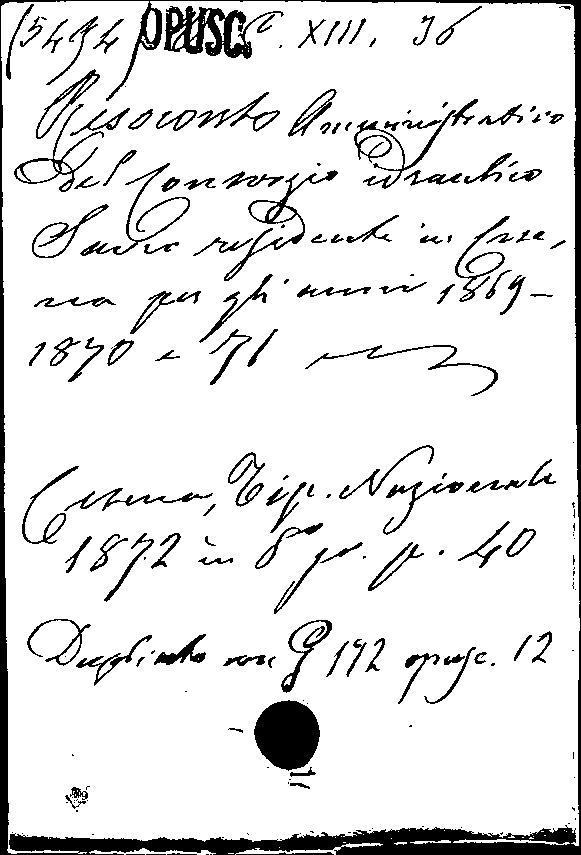 (5494) OPUSC. C. XIII, 36
Resoconto Amministrativo
del Consorzio idraulico
Savio residente in Cese,
na per gli anni 1869-
1870 e 71
Cesena, Tip. Nazionale
1872 in 8° gr. p. 40
Duplicato con G 192 opusc. 12